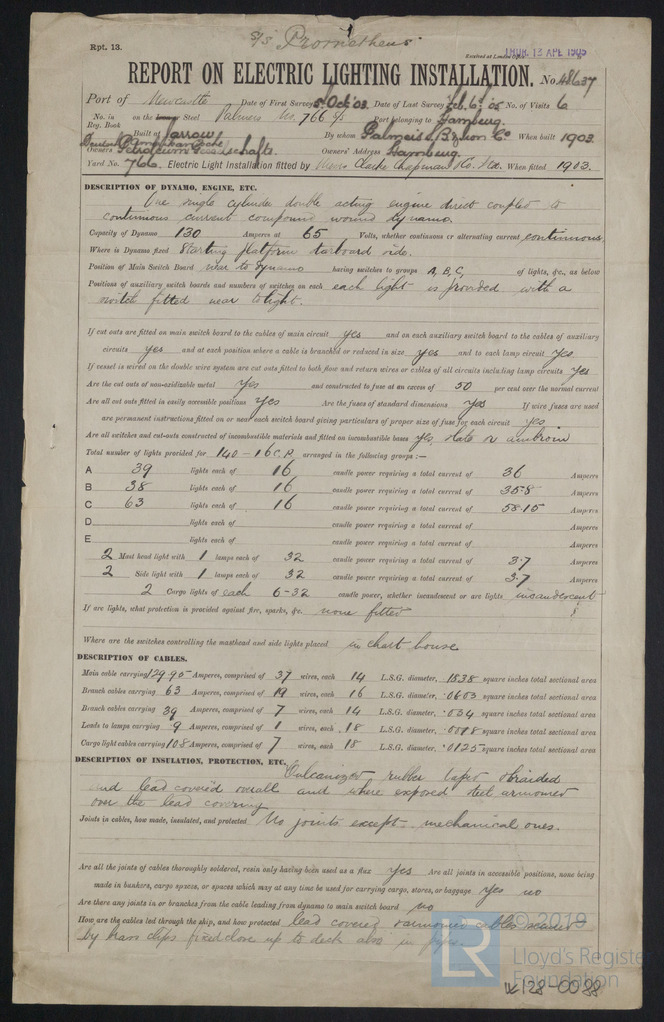 S/S Prometheus
Rpt. 13.
Received at London Office THUR. 13 APR 1905
REPORT ON ELECTRIC LIGHTING INSTALLATION. No. 48637
Port of Newcastle Date of First Survey 5 Oct '03 Date of Last Survey Feb. 6. 05 No. of Visits 6
No. in Reg. Book on the Steel Palmers No. 766 Port belonging to Hamburg
Built at Jarrow By whom Palmers S. B. & Iron Co When built 1903
Owners Deutsch Amerikanische Petroleum Gesellschafts. Owners' Address Hamburg.
Yard No. 766. Electric Light Installation fitted by Messrs Clarke Chapman & Co. Ltd. When fitted 1903.
DESCRIPTION OF DYNAMO, ENGINE, ETC.
One single cylinder double acting engine direct coupled to
continuous current compound wound dynamo.
Capacity of Dynamo 130 Amperes at 65 Volts, whether continuous or alternating current continuous
Where is Dynamo fixed Starting platform starboard side.
Position of Main Switch Board near to dynamo having switches to groups A, B, C, of lights, &c., as below
Positions of auxiliary switch boards and numbers of switches on each each light is provided with a
switch fitted near to light.
If cut outs are fitted on main switch board to the cables of main circuit yes and on each auxiliary switch board to the cables of auxiliary
circuits yes and at each position where a cable is branched or reduced in size yes and to each lamp circuit yes
If vessel is wired on the double wire system are cut outs fitted to both flow and return wires or cables of all circuits including lamp circuits yes
Are the cut outs of non-oxidizable metal yes and constructed to fuse at an excess of 50 per cent over the normal current
Are all cut outs fitted in easily accessible positions yes Are the fuses of standard dimensions yes If wire fuses are used
are permanent instructions fitted on or near each switch board giving particulars of proper size of fuse for each circuit yes
Are all switches and cut-outs constructed of incombustible materials and fitted on incombustible bases yes, slate or ambroin
Total number of lights provided for 140 - 16 C.P. arranged in the following groups :—
A 39 lights each of 16 candle power requiring a total current of 36 Amperes
B 38 lights each of 16 candle power requiring a total current of 35.8 Amperes
C 63 lights each of 16 candle power requiring a total current of 58.15 Amperes
D lights each of candle power requiring a total current of Amperes
E lights each of candle power requiring a total current of Amperes
2 Mast head light with 1 lamps each of 32 candle power requiring a total current of 3.7 Amperes
2 Side light with 1 lamps each of 32 candle power requiring a total current of 3.7 Amperes
2 Cargo lights of each 6-32 candle power, whether incandescent or arc lights incandescent
If arc lights, what protection is provided against fire, sparks, &c. none fitted
Where are the switches controlling the masthead and side lights placed in chart house
DESCRIPTION OF CABLES.
Main cable carrying 129.95 Amperes, comprised of 37 wires, each 14 L.S.G. diameter, .1838 square inches total sectional area
Branch cables carrying 63 Amperes, comprised of 19 wires, each 16 L.S.G. diameter, .0603 square inches total sectional area
Branch cables carrying 39 Amperes, comprised of 7 wires, each 14 L.S.G. diameter, .034 square inches total sectional area
Leads to lamps carrying 9 Amperes, comprised of 1 wires, each 18 L.S.G. diameter, .0018 square inches total sectional area
Cargo light cables carrying 10.8 Amperes, comprised of 7 wires, each 18 L.S.G. diameter, .0125 square inches total sectional area
DESCRIPTION OF INSULATION, PROTECTION, ETC.
Vulcanized rubber taped & braided
and lead covered overall and where exposed steel armoured
over the lead covering
Joints in cables, how made, insulated, and protected No joints except mechanical ones.
Are all the joints of cables thoroughly soldered, resin only having been used as a flux yes Are all joints in accessible positions, none being
made in bunkers, cargo spaces, or spaces which may at any time be used for carrying cargo, stores, or baggage yes no
Are there any joints in or branches from the cable leading from dynamo to main switch board no
How are the cables led through the ship, and how protected lead covered & armoured cables secured
by brass clips fixed close up to deck also in pipes.
© 2019
LR
Lloyd's Register
Foundation
W128-0088